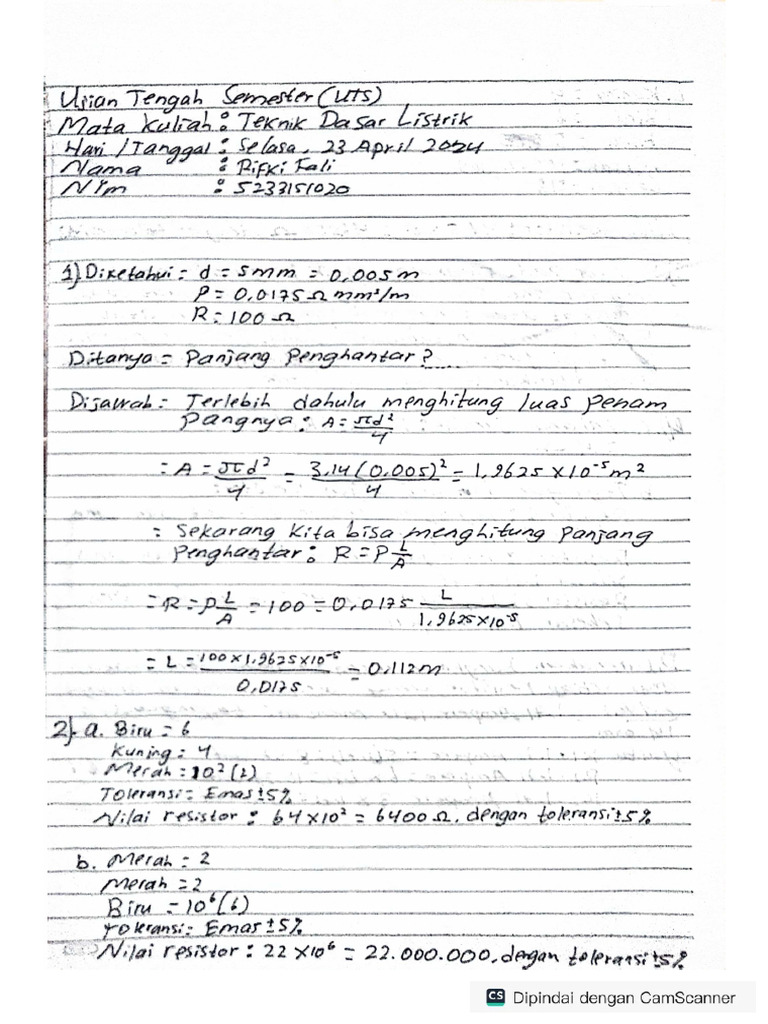 Ujian Tengah Semester (UTS)
Mata Kuliah : Teknik Dasar Listrik
Hari / Tanggal : Selasa, 23 April 2024
Nama : Rifki Fali
Nim : 5233151020
1) Diketahui = d = 5mm = 0,005 m
P = 0,0175 Ω mm²/m
R = 100 Ω
Ditanya = Panjang Penghantar?
Dijawab = Terlebih dahulu menghitung luas Penam
Pangnya : A = πd²/4
= A = πd²/4 = 3.14 (0.005)²/4 = 1,9625 × 10⁻⁵ m²
= Sekarang kita bisa menghitung Panjang
Penghantar : R = P L/A
= R = P L/A = 100 = 0,0175 L/1,9625×10⁻⁵
= L = 100×1.9625×10⁻⁵/0,0175 = 0,112 m
2) a. Biru = 6
Kuning = 4
Merah = 10² (2)
Toleransi = Emas ± 5%
Nilai resistor : 64 × 10² = 6400 Ω, dengan toleransi ± 5%
b. Merah = 2
Merah = 2
Biru = 10⁶ (6)
Toleransi = Emas ± 5%
Nilai resistor : 22 × 10⁶ = 22.000.000, dengan toleransi ± 5%
CS Dipindai dengan CamScanner